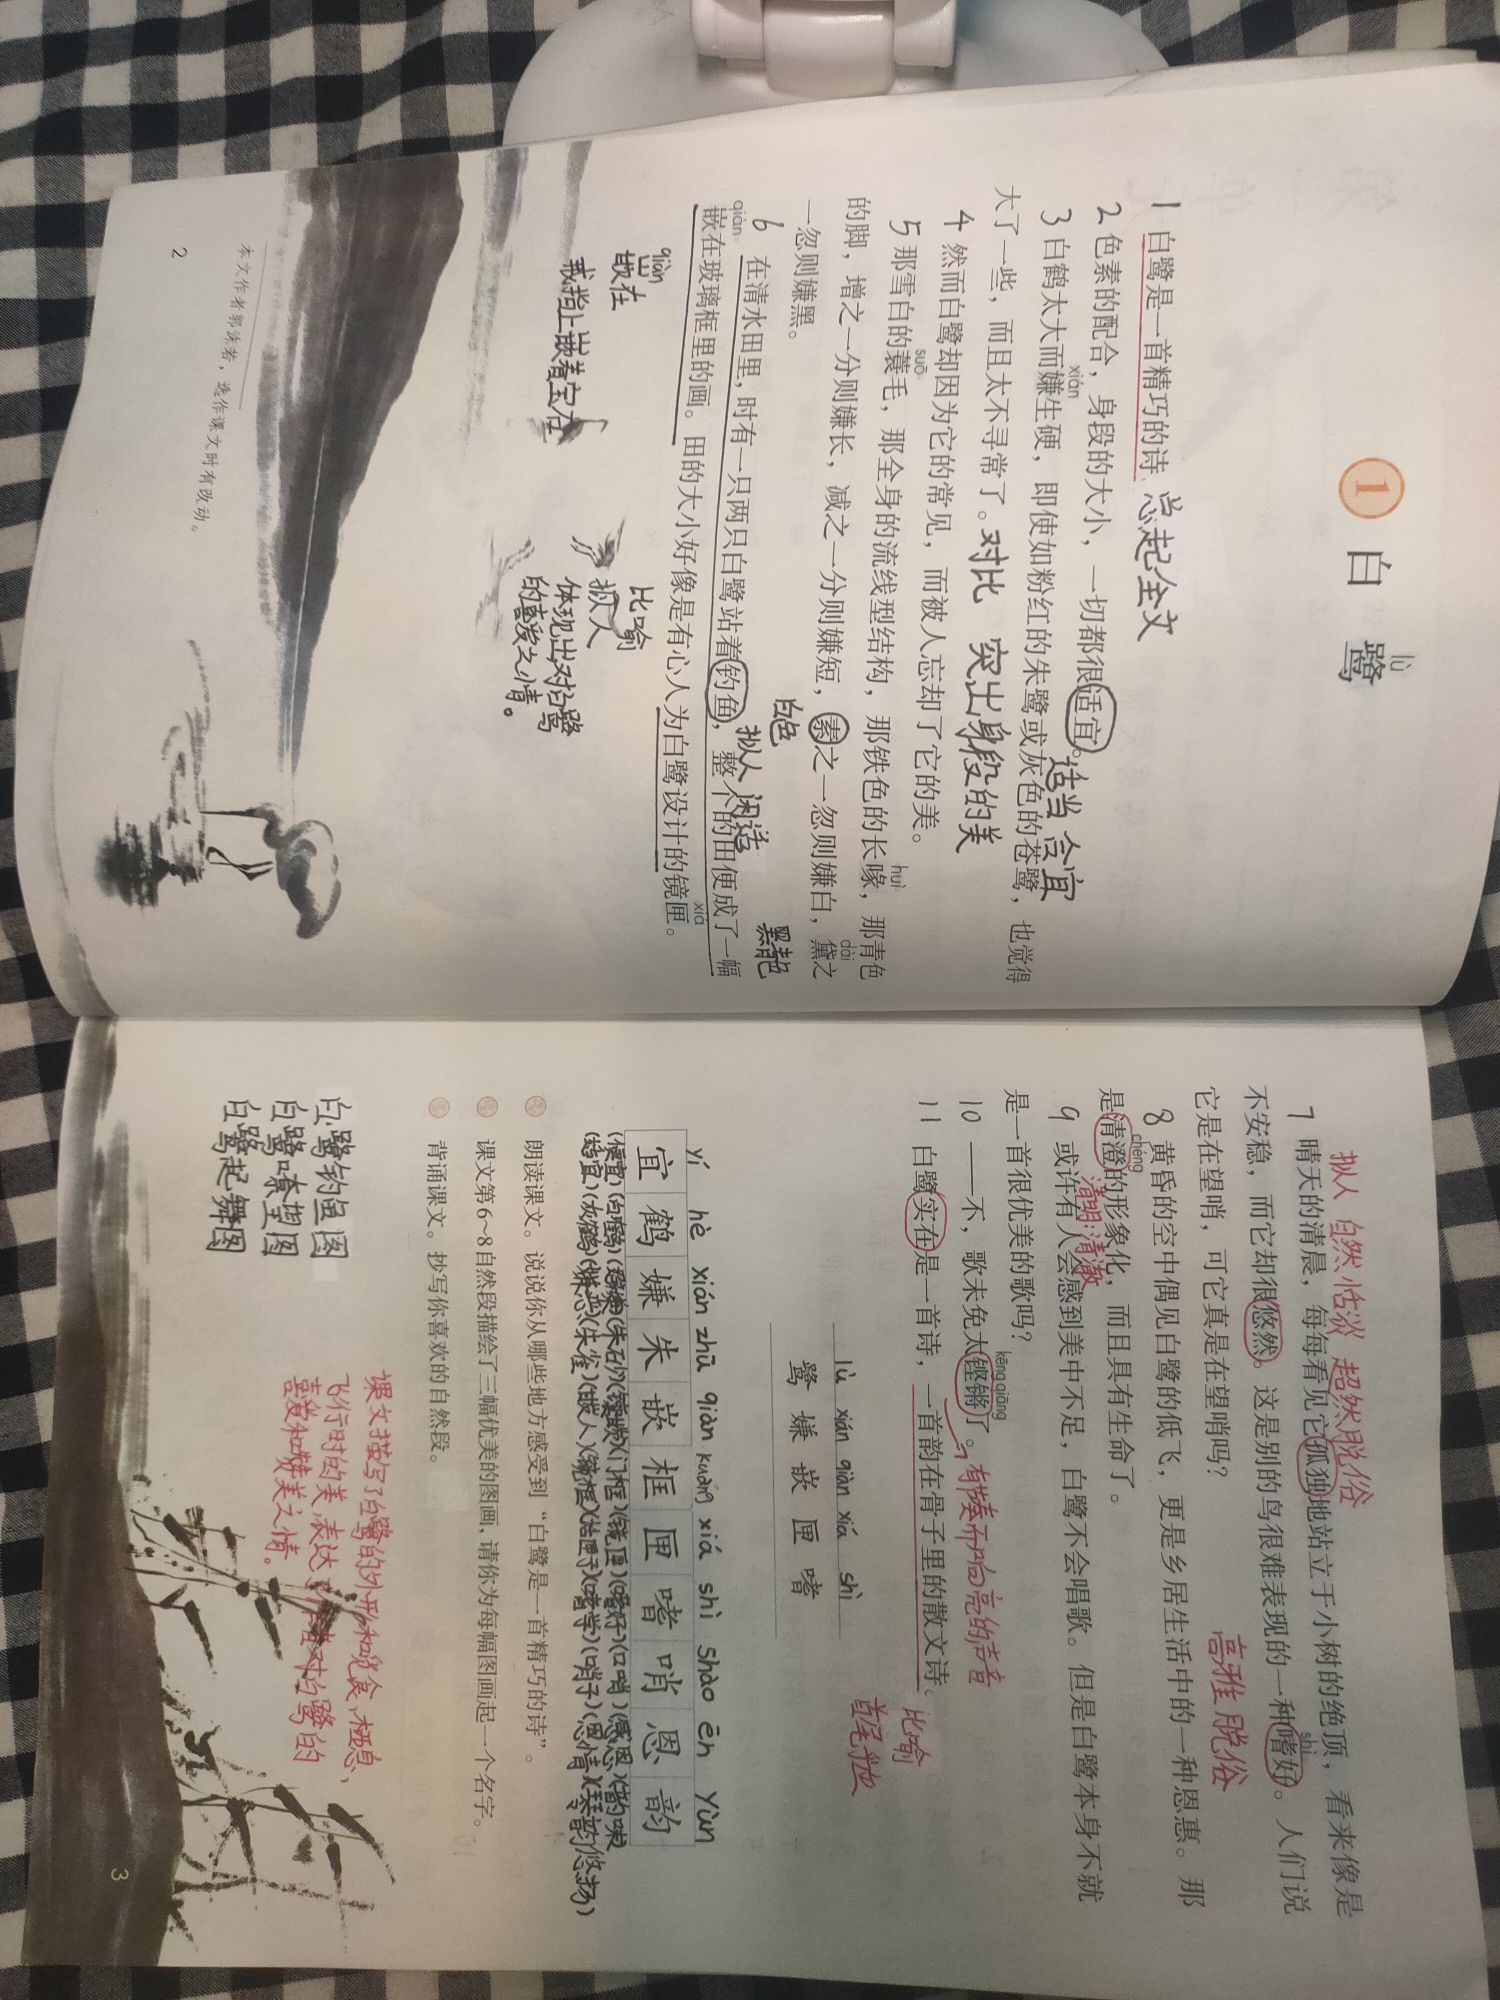 1
lù
白 鹭
1 白鹭是一首精巧的诗。总起全文
2 色素的配合，身段的大小，一切都很适宜。适当 合宜
xián
3 白鹤太大而嫌生硬，即使如粉红的朱鹭或灰色的苍鹭，也觉得
大了一些，而且太不寻常了。对比 突出身段的美
4 然而白鹭却因为它的常见，而被人忘却了它的美。
suō huì
5 那雪白的蓑毛，那全身的流线型结构，那铁色的长喙，那青色
dài
的脚，增之一分则嫌长，减之一分则嫌短，素之一忽则嫌白，黛之
白色 黑青色
一忽则嫌黑。
拟人 闲适
6 在清水田里，时有一只两只白鹭站着钓鱼，整个的田便成了一幅
qiàn xiá
嵌在玻璃框里的画。田的大小好像是有心人为白鹭设计的镜匣。
qiàn
嵌在
戒指上嵌着宝石
比喻
拟人
体现出对白鹭
的喜爱之情。
本文作者郭沫若，选作课文时有改动。
2
拟人 自然 恬淡 超然脱俗
7 晴天的清晨，每每看见它孤独地站立于小树的绝顶，看来像是
shì
不安稳，而它却很悠然。这是别的鸟很难表现的一种嗜好。人们说
它是在望哨，可它真是在望哨吗？
高雅脱俗
8 黄昏的空中偶见白鹭的低飞，更是乡居生活中的一种恩惠。那
chéng
是清澄的形象化，而且具有生命了。
清明；清澈
9 或许有人会感到美中不足，白鹭不会唱歌。但是白鹭本身不就
是一首很优美的歌吗？
kēng qiāng
10 ——不，歌未免太铿锵了。有节奏而响亮的声音
11 白鹭实在是一首诗，一首韵在骨子里的散文诗。
比喻
首尾呼应
lù xián qiàn xiá shì
鹭 嫌 嵌 匣 嗜
yí hè xián zhū qiàn kuàng xiá shì shào ēn yùn
宜 鹤 嫌 朱 嵌 框 匣 嗜 哨 恩 韵
(便宜)(白鹤)(嫌弃)(朱砂)(镶嵌)(门框)(镜匣)(嗜好)(口哨)(感恩)(韵味)
(适宜)(灰鹤)(嫌恶)(朱雀)(嵌入)(镜框)(匣子)(嗜学)(哨子)(恩情)(琴韵悠扬)
朗读课文。说说你从哪些地方感受到“白鹭是一首精巧的诗”。
课文第6~8自然段描绘了三幅优美的图画，请你为每幅图画起一个名字。
背诵课文。抄写你喜欢的自然段。
白鹭钓鱼图
白鹭瞭望图
白鹭起舞图
课文描写了白鹭的外形和觅食、栖息、
飞行时的美，表达了作者对白鹭的
喜爱和赞美之情。
3